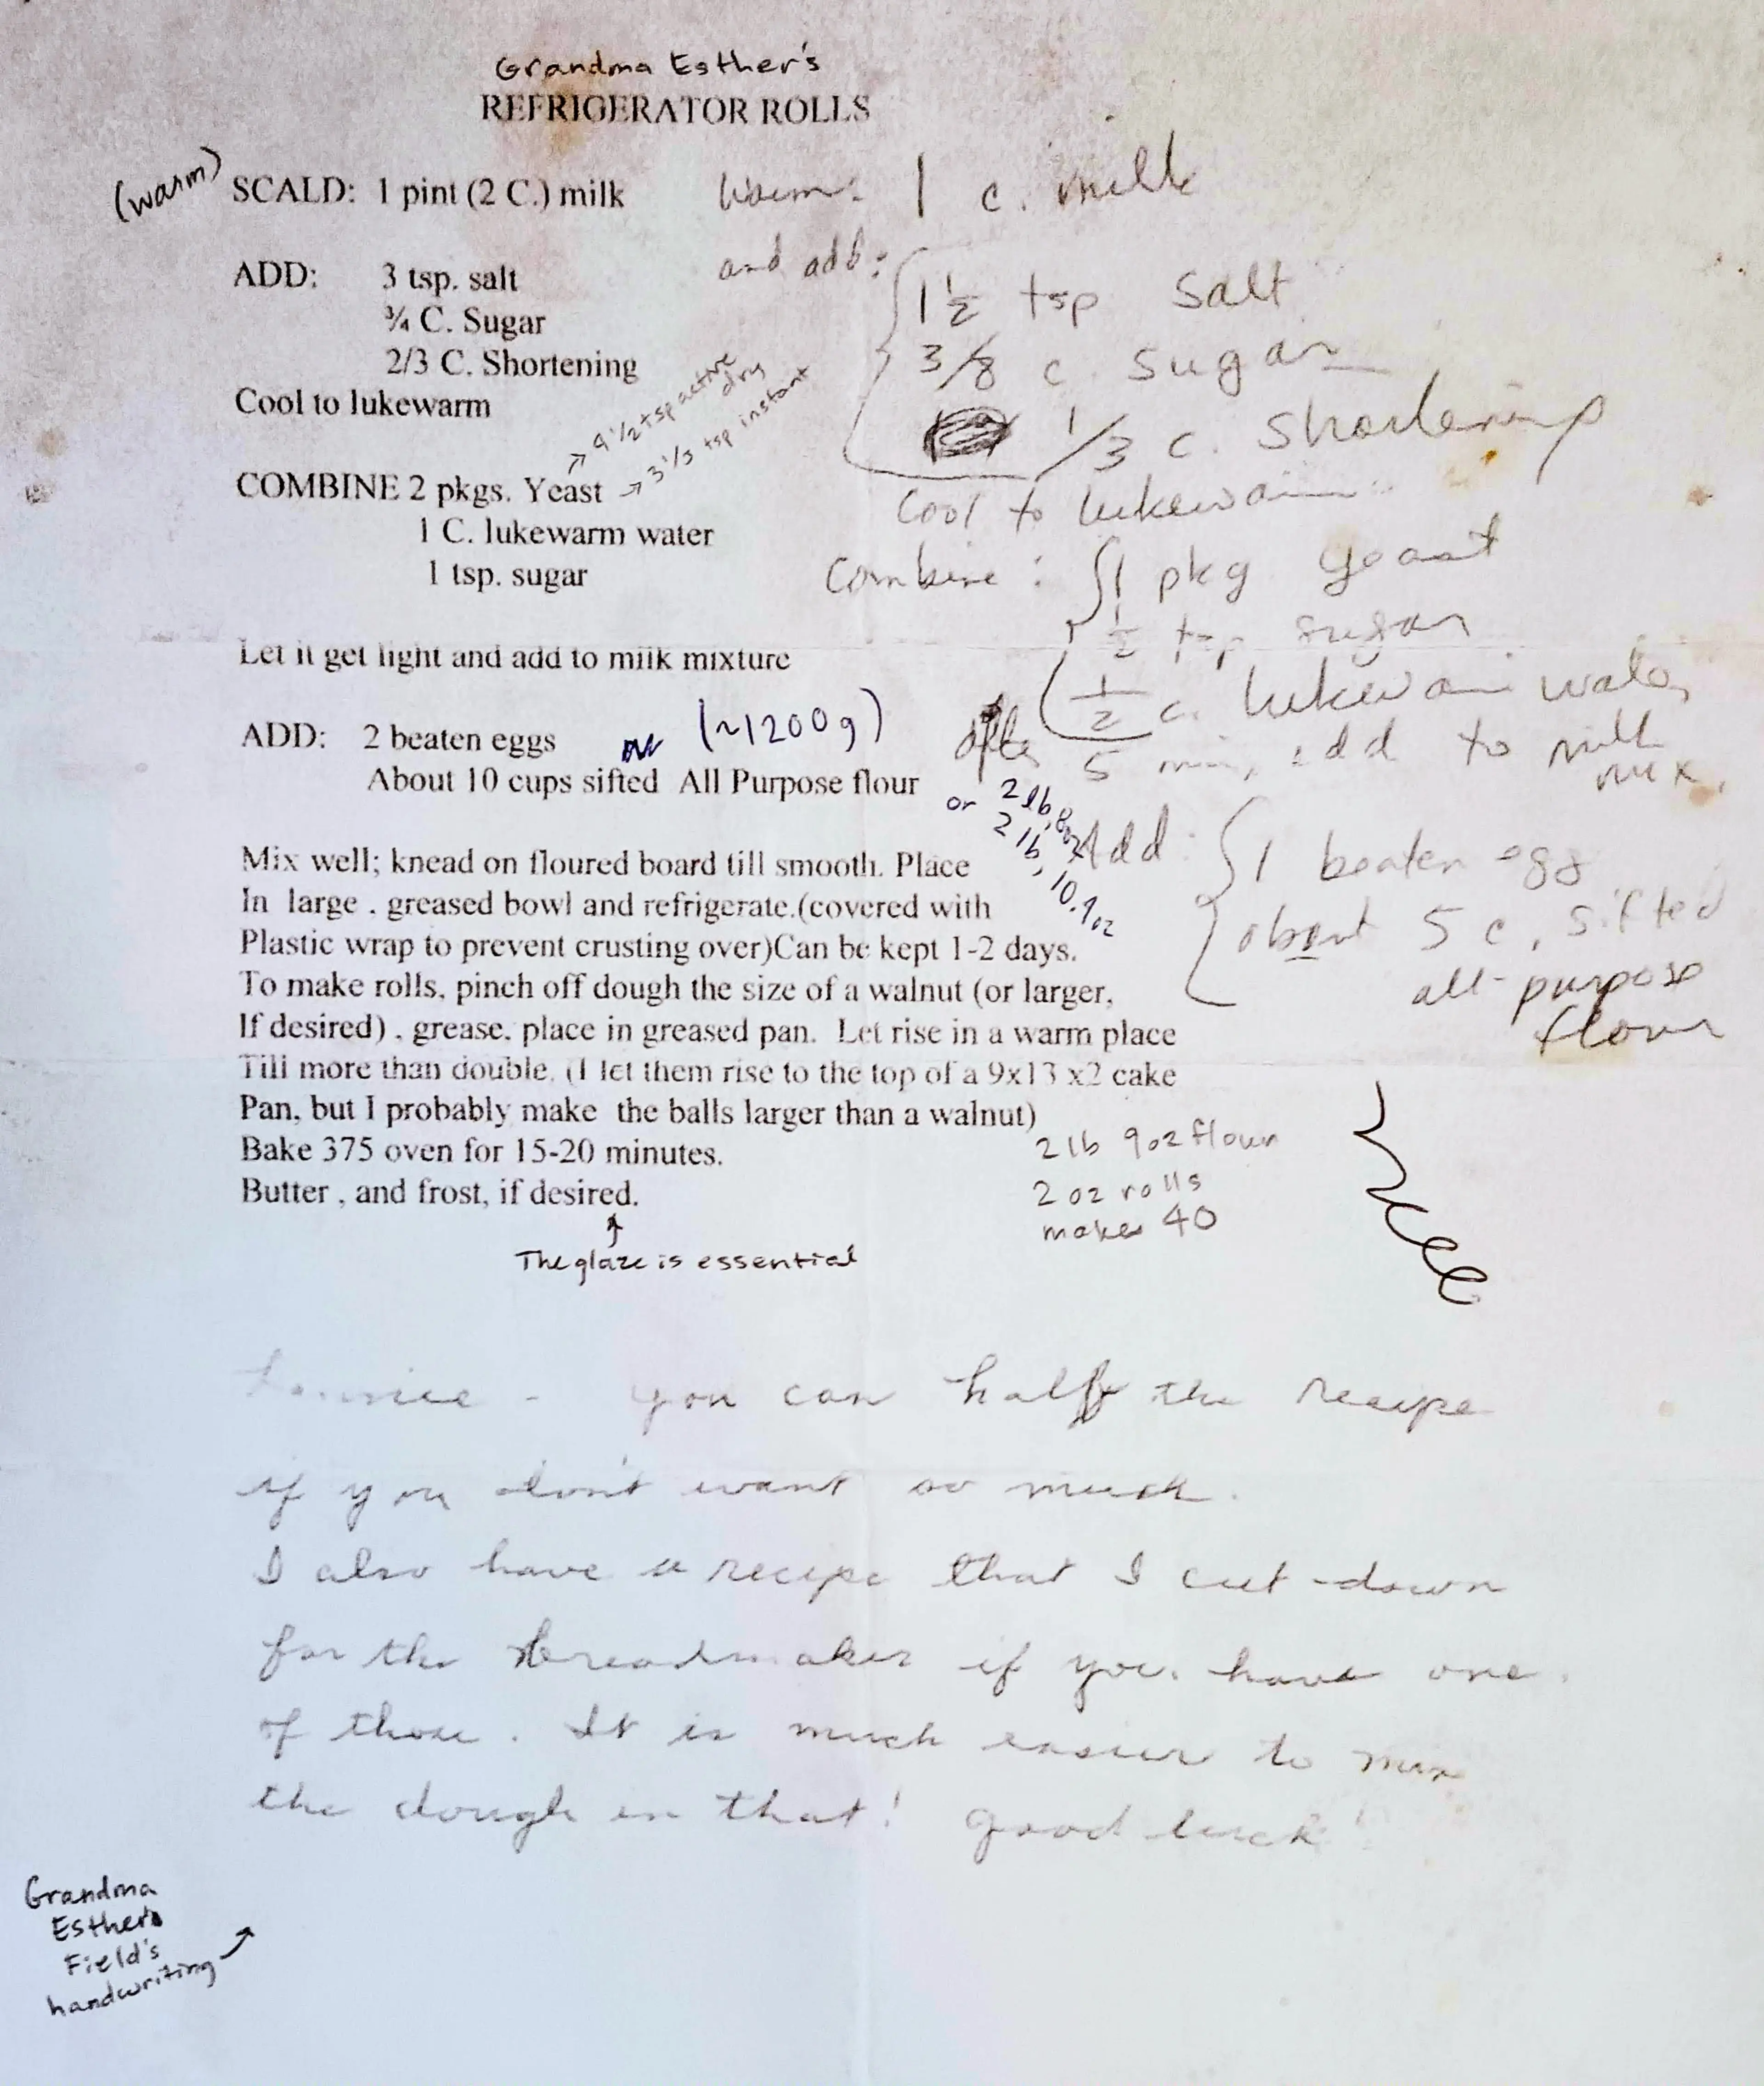 Grandma Esther's
REFRIGERATOR ROLLS
(warm) SCALD: 1 pint (2 C.) milk
ADD: 3 tsp. salt
¾ C. Sugar
2/3 C. Shortening
Cool to lukewarm
→ 4 1/2 tsp active dry
→ 3 1/3 tsp instant
COMBINE 2 pkgs. Yeast
1 C. lukewarm water
1 tsp. sugar
Let it get light and add to milk mixture
ADD: 2 beaten eggs
(~1200g)
About 10 cups sifted All Purpose flour
or 2 lb, 8oz
2 lb, 10.9oz
Mix well; knead on floured board till smooth. Place
In large . greased bowl and refrigerate.(covered with
Plastic wrap to prevent crusting over)Can be kept 1-2 days.
To make rolls, pinch off dough the size of a walnut (or larger,
If desired) , grease, place in greased pan. Let rise in a warm place
Till more than double. (I let them rise to the top of a 9x13 x2 cake
Pan, but I probably make the balls larger than a walnut)
Bake 375 oven for 15-20 minutes.
Butter , and frost, if desired.
↑
The glaze is essential
2 lb 9oz flour
2 oz rolls
makes 40
Warm: 1 c. milk
and add:
1 1/2 tsp salt
3/8 c. sugar
1/3 c. shortening
Cool to lukewarm
Combine: 1 pkg yeast
1/2 tsp sugar
1/2 c. lukewarm water
after 5 min, add to milk
mix.
Add: 1 beaten egg
about 5 c. sifted
all-purpose
flour
- you can half the recipe
if you don't want so much.
I also have a recipe that I cut down
for the breadmaker if you have one
of those. It is much easier to mix
the dough in that! Good luck!
Grandma
Esther
Field's
handwriting →